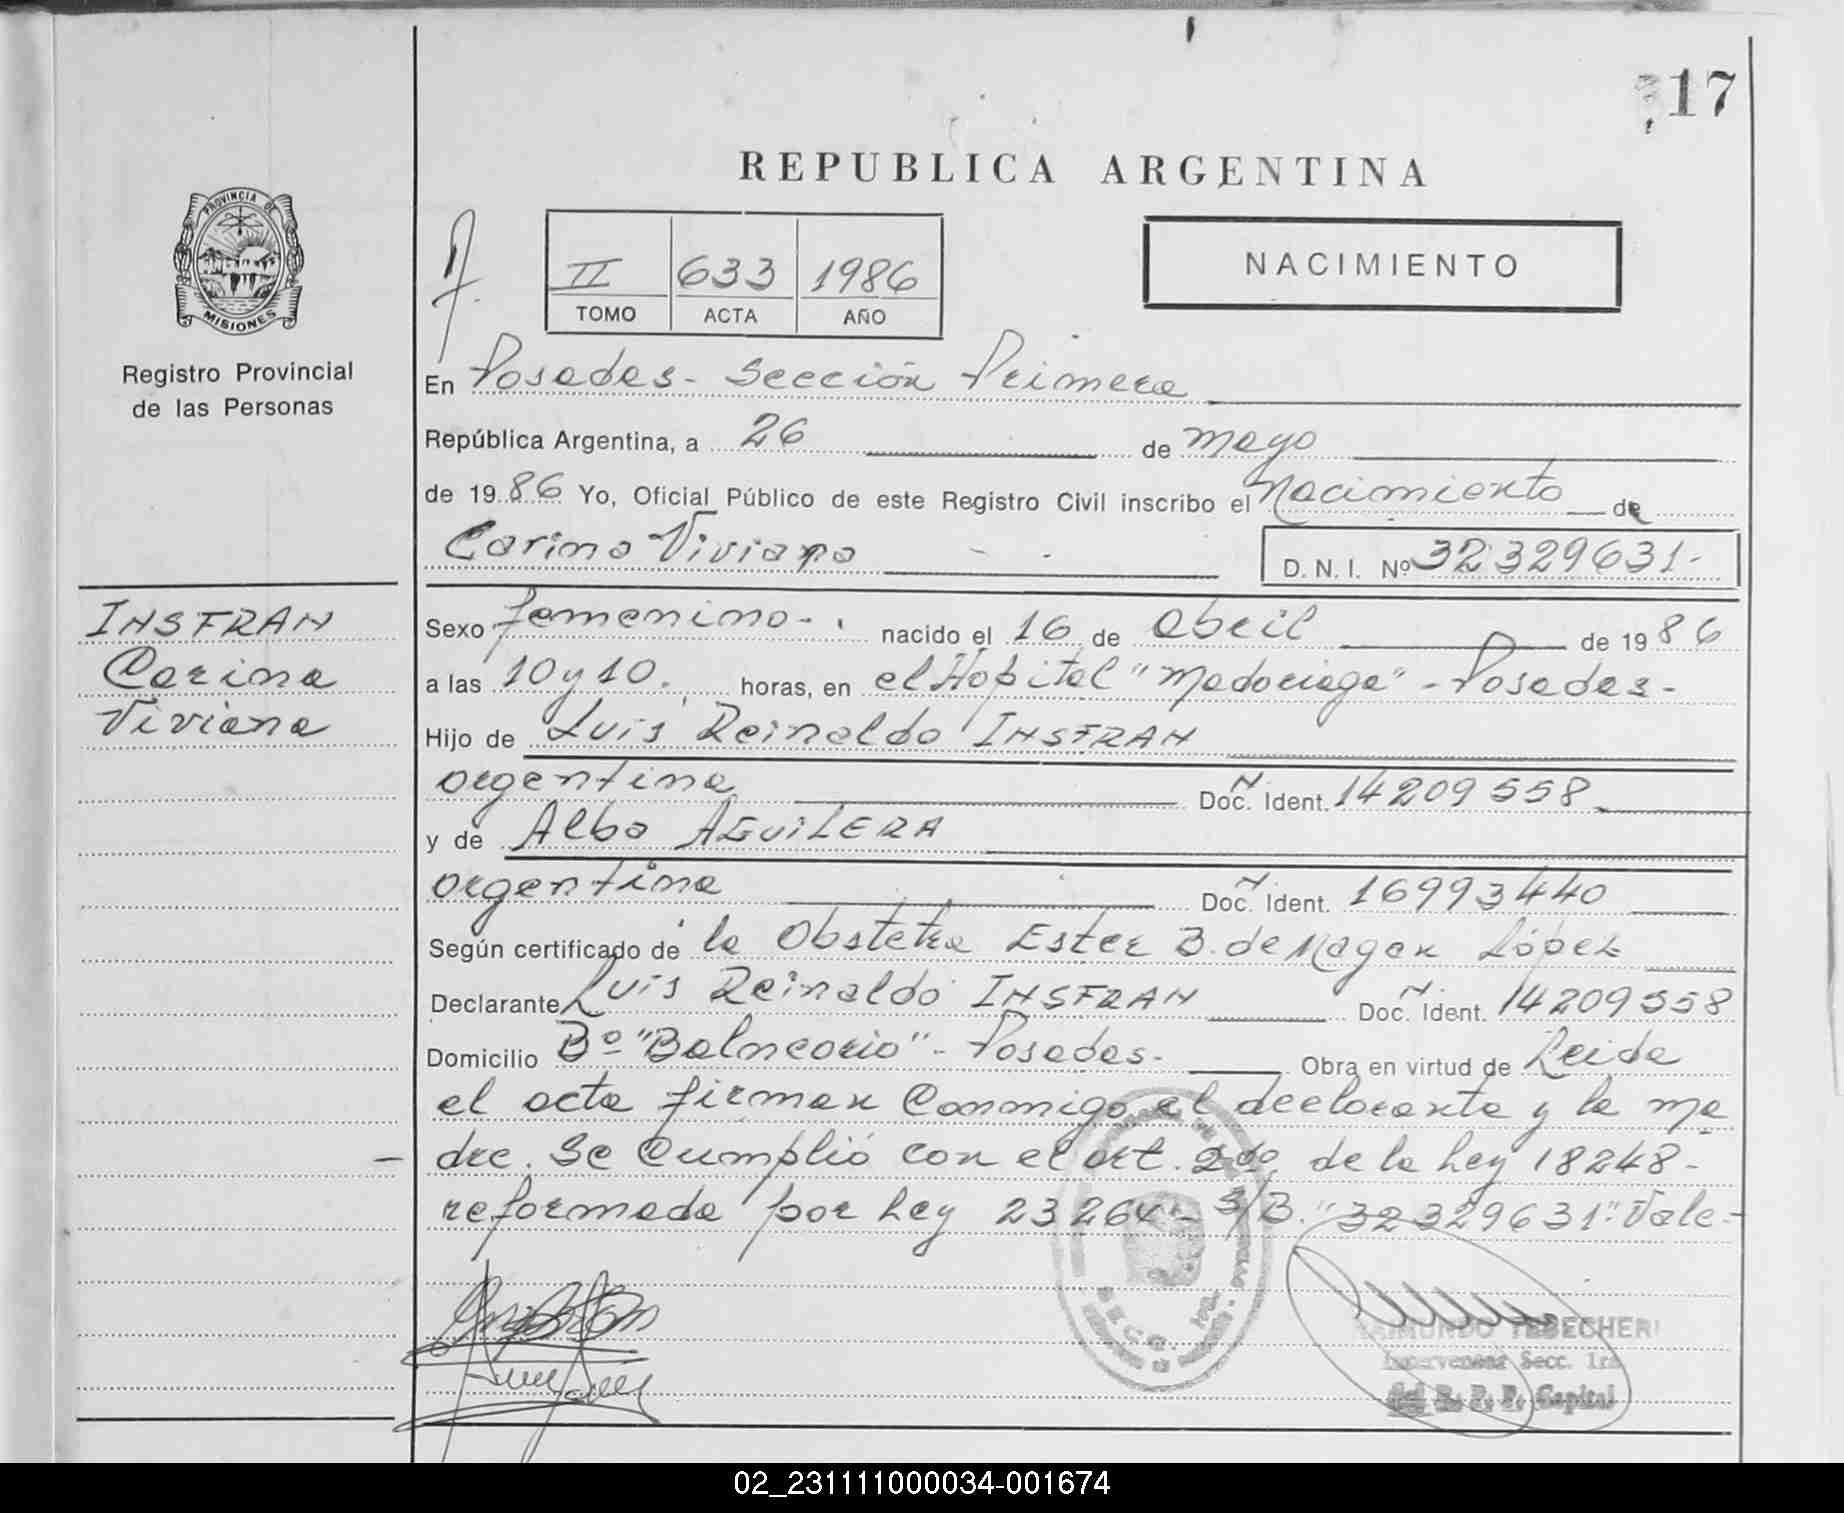 17
REPUBLICA ARGENTINA
PROVINCIA DE
MISIONES
Registro Provincial
de las Personas
II 633 1986
TOMO ACTA AÑO
NACIMIENTO
En Posadas - Sección Primera
República Argentina, a 26 de mayo
de 1986 Yo, Oficial Público de este Registro Civil inscribo el Nacimiento de
Carina Viviana D. N. I. Nº 32329631.-
INSFRAN
Carina
Viviana
Sexo femenino-. nacido el 16 de abril de 1986
a las 10 y 10. horas, en el Hopital "Madariaga" - Posadas-
Hijo de Luis Reinaldo INSFRAN
argentina Doc. Ident. 14209558
y de Alba AGUILERA
argentina Doc. Ident. 16993440
Según certificado de la Obstetra Ester B. de López
Declarante Luis Reinaldo INSFRAN Doc. Ident. 14209558
Domicilio Bº "Balneario" - Posadas- Obra en virtud de Leida
el acta firman conmigo el declarante y la ma
dre. Se cumplió con el art. 2do. de la Ley 18248-
reformada por Ley 23264 - S/B. "32329631". Vale-
RAIMUNDO TEBECHERI
Interventor Secc. 1ra
del R. P. P. Capital
02_231111000034-001674